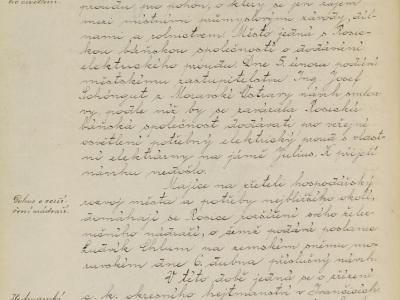 ho osvětlení.
proudu pro pohon, o který se jen zajem
mezi místními průmyslovými závody, díl-
nami a rolnictvem. Město jedná s Rosic-
kou báňskou společností o dodávání
elektrického proudu. Dne 5. února podává
městskému zastupitelstvu Ing. Josef
Schöngut z Moravské Ostravy návrh smlou-
vy podle níž by se zavázala Rosická
báňská společnost dodávati pro veřejné
osvětlení potřebný elektrický proud z vlast-
ní elektrárny na jámě Julius. K přijetí
návrhu nedošlo.
Majíce na zřeteli hospodářský
Pokus o rozší-
ření nádraží.
rozvoj města a potřeby nejbližšího okolí,
domáhají se Rosice rozšíření svého želez-
ničního nádraží, o čemž podává poslanec
Ludvík na zemském sněmu mo-
ravském dne 6. dubna příslušný návrh.
V této době jedná se o zřízení
Hejtmanství
c. k. okresního hejtmanství v Ivančicích